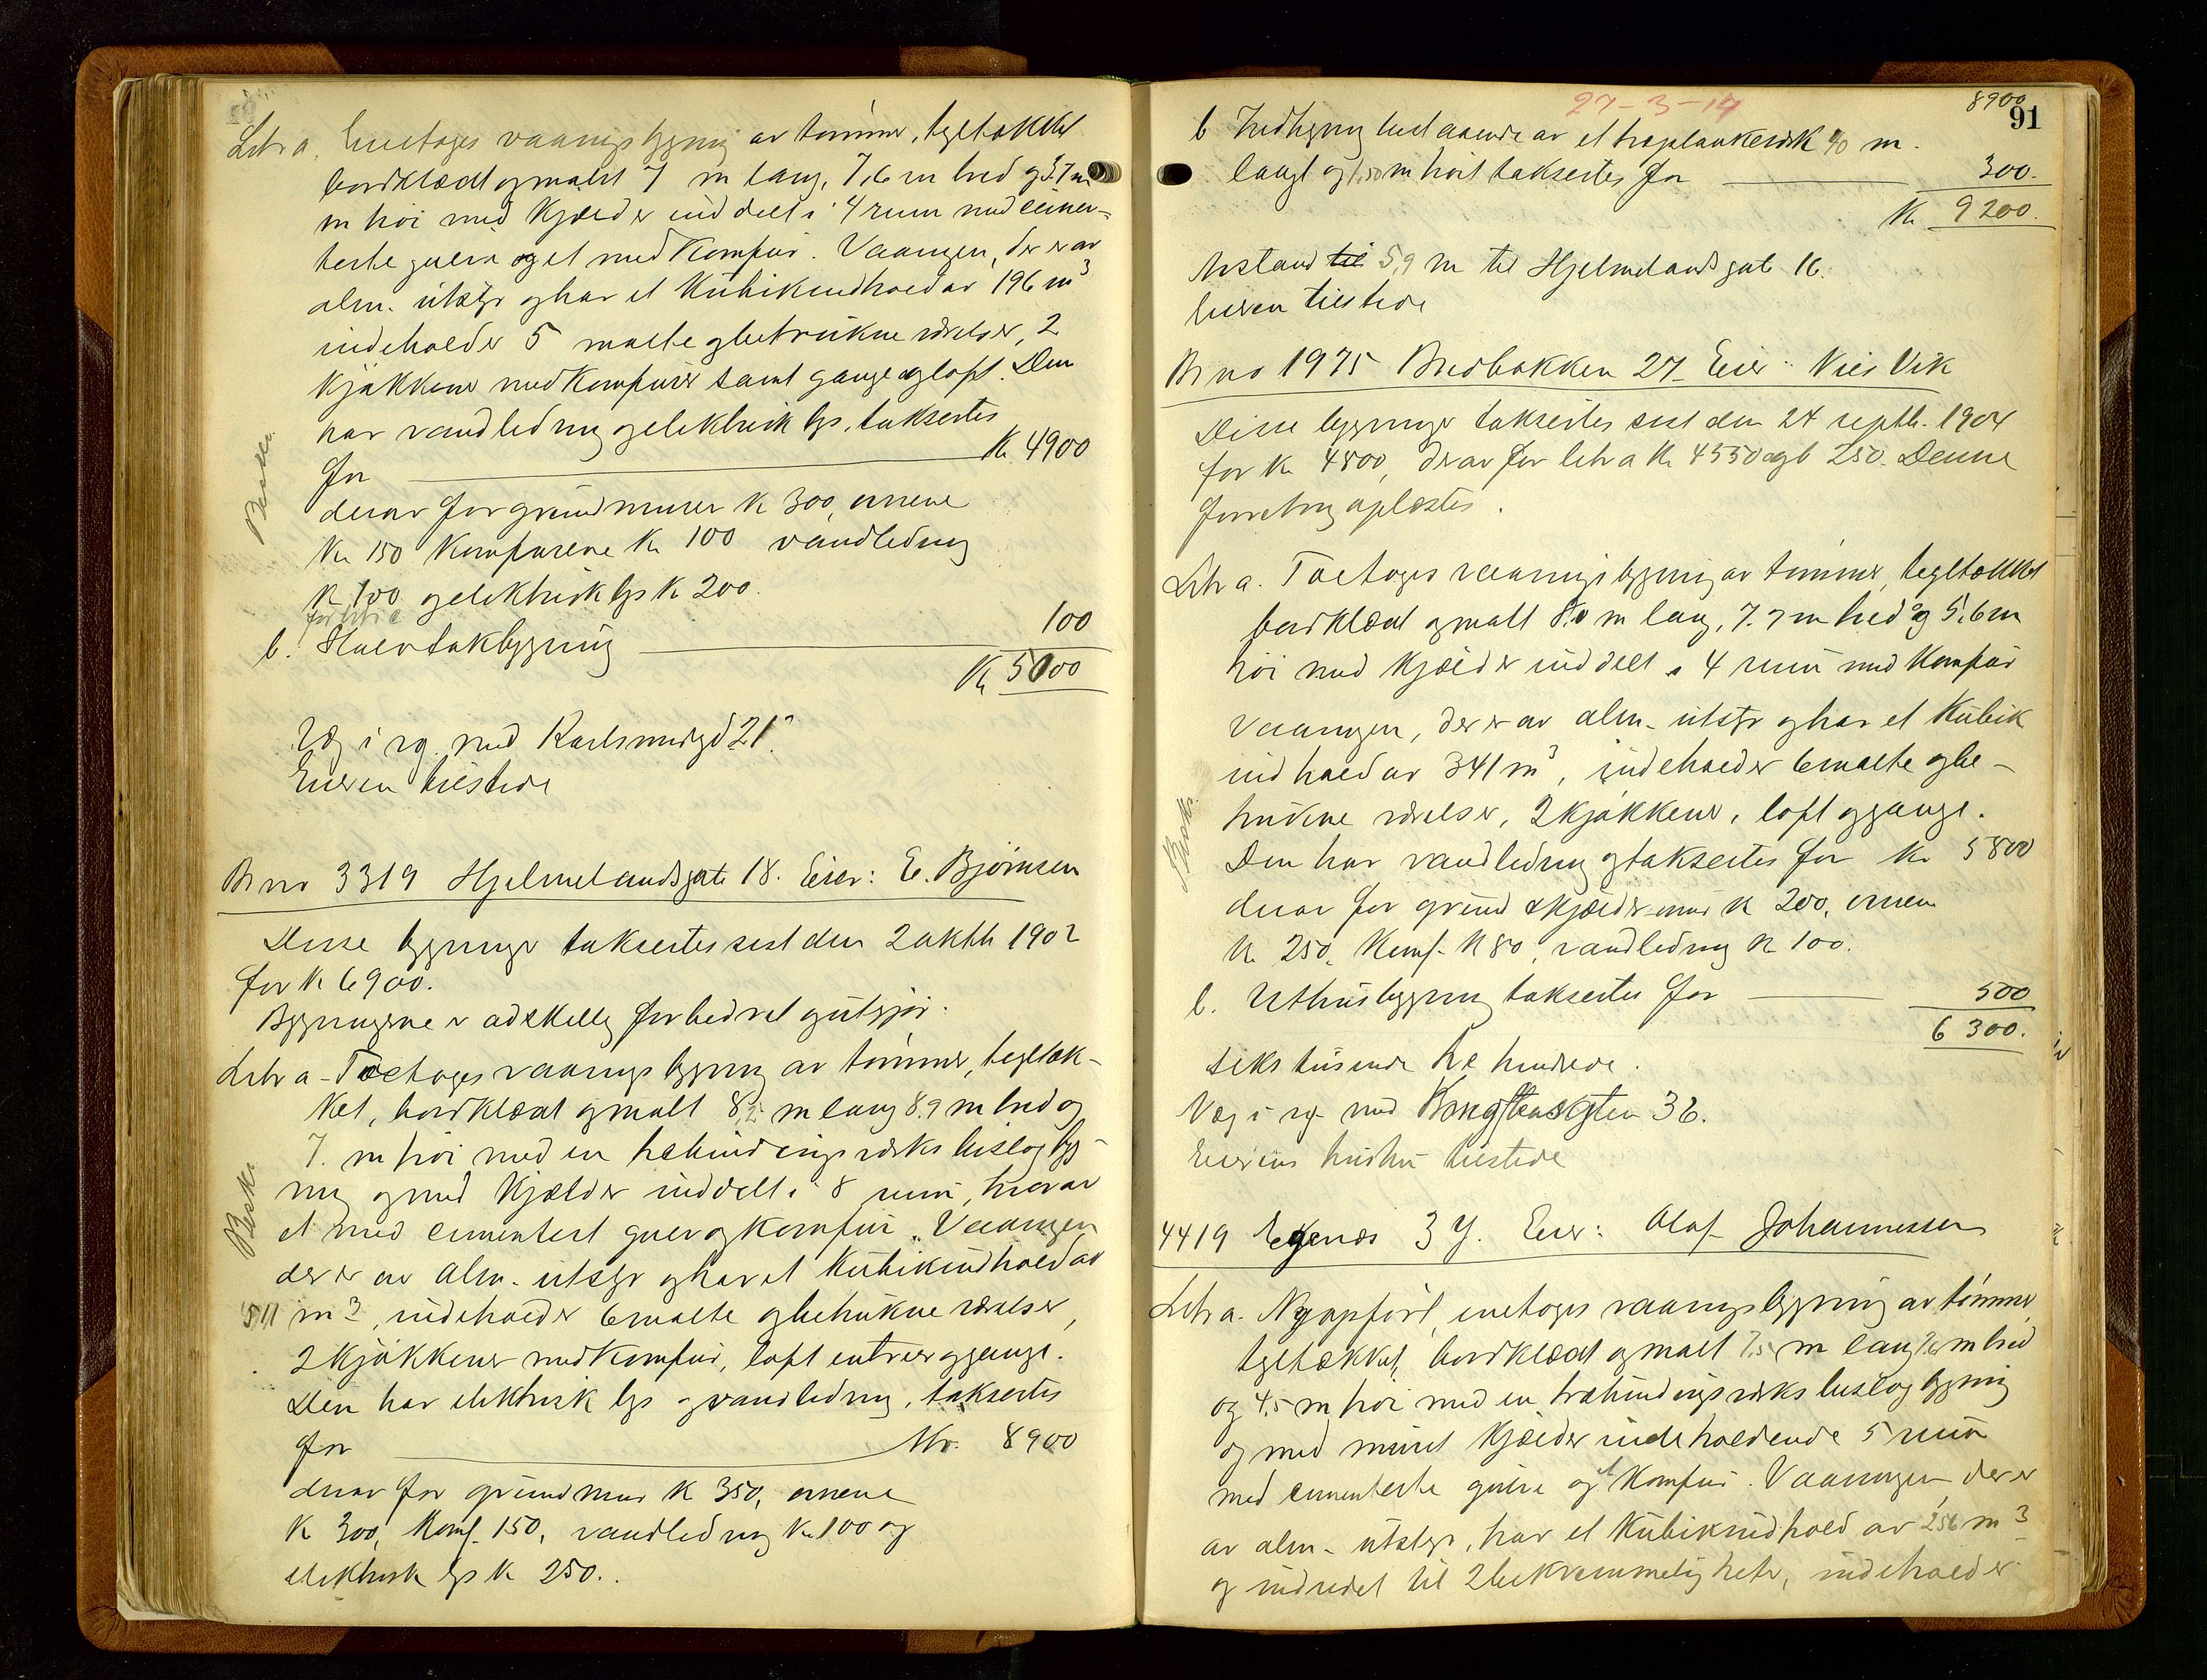 Litr a. Enetages vaaningsbygning av tømmer, tegltækket
bordklædt og malt 7 m lang, 7,6 m bred og 3.7 m
m høi med kjælder inddelt i 4 rum med cemen-
terte gulve og et med komfur. Vaaningen, der er av
alm. utstyr og har et kubikindhold av 196 m³
indeholder 5 malte og betrukne værelser, 2
kjøkkener med komfurer samt gange og loft. Den
har vandledning og elektrisk lys, taksertes
for Kr. 4900
derav for grundmurer kr 300, ovnene
Kr 150 Komfurene Kr 100 vandledning
kr 100 og elektrisk lys kr 200.
for litr a
b. Halvtakbygning 100
Kr 5000
Væg i væg med Karlsmindegd 21.
Eieren tilstede
Br no 3319 Hjelmelandsgate 18. Eier: E. Bjørnsen
Disse bygninger taksertes sist den 2 oktbr 1902
for kr 6900.
Bygningerne er adskillig forbedret og utgjør.
Litr a - Toetages vaaningsbygning av tømmer, tegltæk-
ket, bordklædt og malt 8,2 m lang 8.9 m bred og
7. m høi med en træbindingsverks bislagbyg-
ning og med kjælder inddelt i 8 rum, hvorav
et med cementert gulv og komfur. Vaaningen
der er av alm. utstyr og har et kubikindhold av
511 m³, indeholder 6 malte og betrukne værelser,
2 kjøkkener med komfur, loft entreer og gange.
Den har elektrisk lys og vandledning, taksertes
for Kr. 8900
derav for grundmur kr 350, ovnene
kr 300, Komf. 150, vandledning kr 100 og
elektrisk lys kr 250.
Besk.
27-3-14
8900
91
b Indhegning bestaaende av et træplankeverk 40 m.
langt og 1,50 m høit taksertes for 300.
Kr 9200.
Avstand til 5,9 m til Hjelmelandsgate 16.
Eieren tilstede
Br no 1975 Bredbakken 27 Eier: Nils Vik
Disse bygninger taksertes sist den 24 septbr. 1904
for kr 4800, derav for litr a kr 4550 og b 250. Denne
forretning oplæstes.
Litr a. Toetages vaaningsbygning av tømmer, tegltækket
bordklædt og malt 8.0 m lang, 7.7 m bred og 5,6 m
høi med kjælder inddelt i 4 rum med komfur
Vaaningen, der er av alm. utstyr og har et kubik
indhold av 341 m³, indeholder 6 malte og be-
trukne værelser, 2 kjøkkener, loft og gange.
Den har vandledning og taksertes for kr 5800
derav for grund & kjældermur kr 200, ovnene
kr 250, Komf. kr 80, vandledning kr 100.
b. Uthusbygning taksertes for 500
6300.
seks tusinde tre hundrede.
Væg i væg med Kongstensgten 36.
Eierens hustru tilstede
Besk.
4419 Egenæs 3 y. Eier: Olaf Johannessen
Litr a. Nyopført, enetages vaaningsbygning av tømmer
tegltækket, bordklædt og malt 7,5 m lang 7.6 m bred
og 4,5 m høi med en træbindingsverks bislagbygning
og med muret kjælder indeholdende 5 rum
med cementerte gulve og et komfur. Vaaningen, der er
av alm. utstyr, har et kubikindhold av 256 m³
og indredet til 2 bekvemmeligheter, indeholder